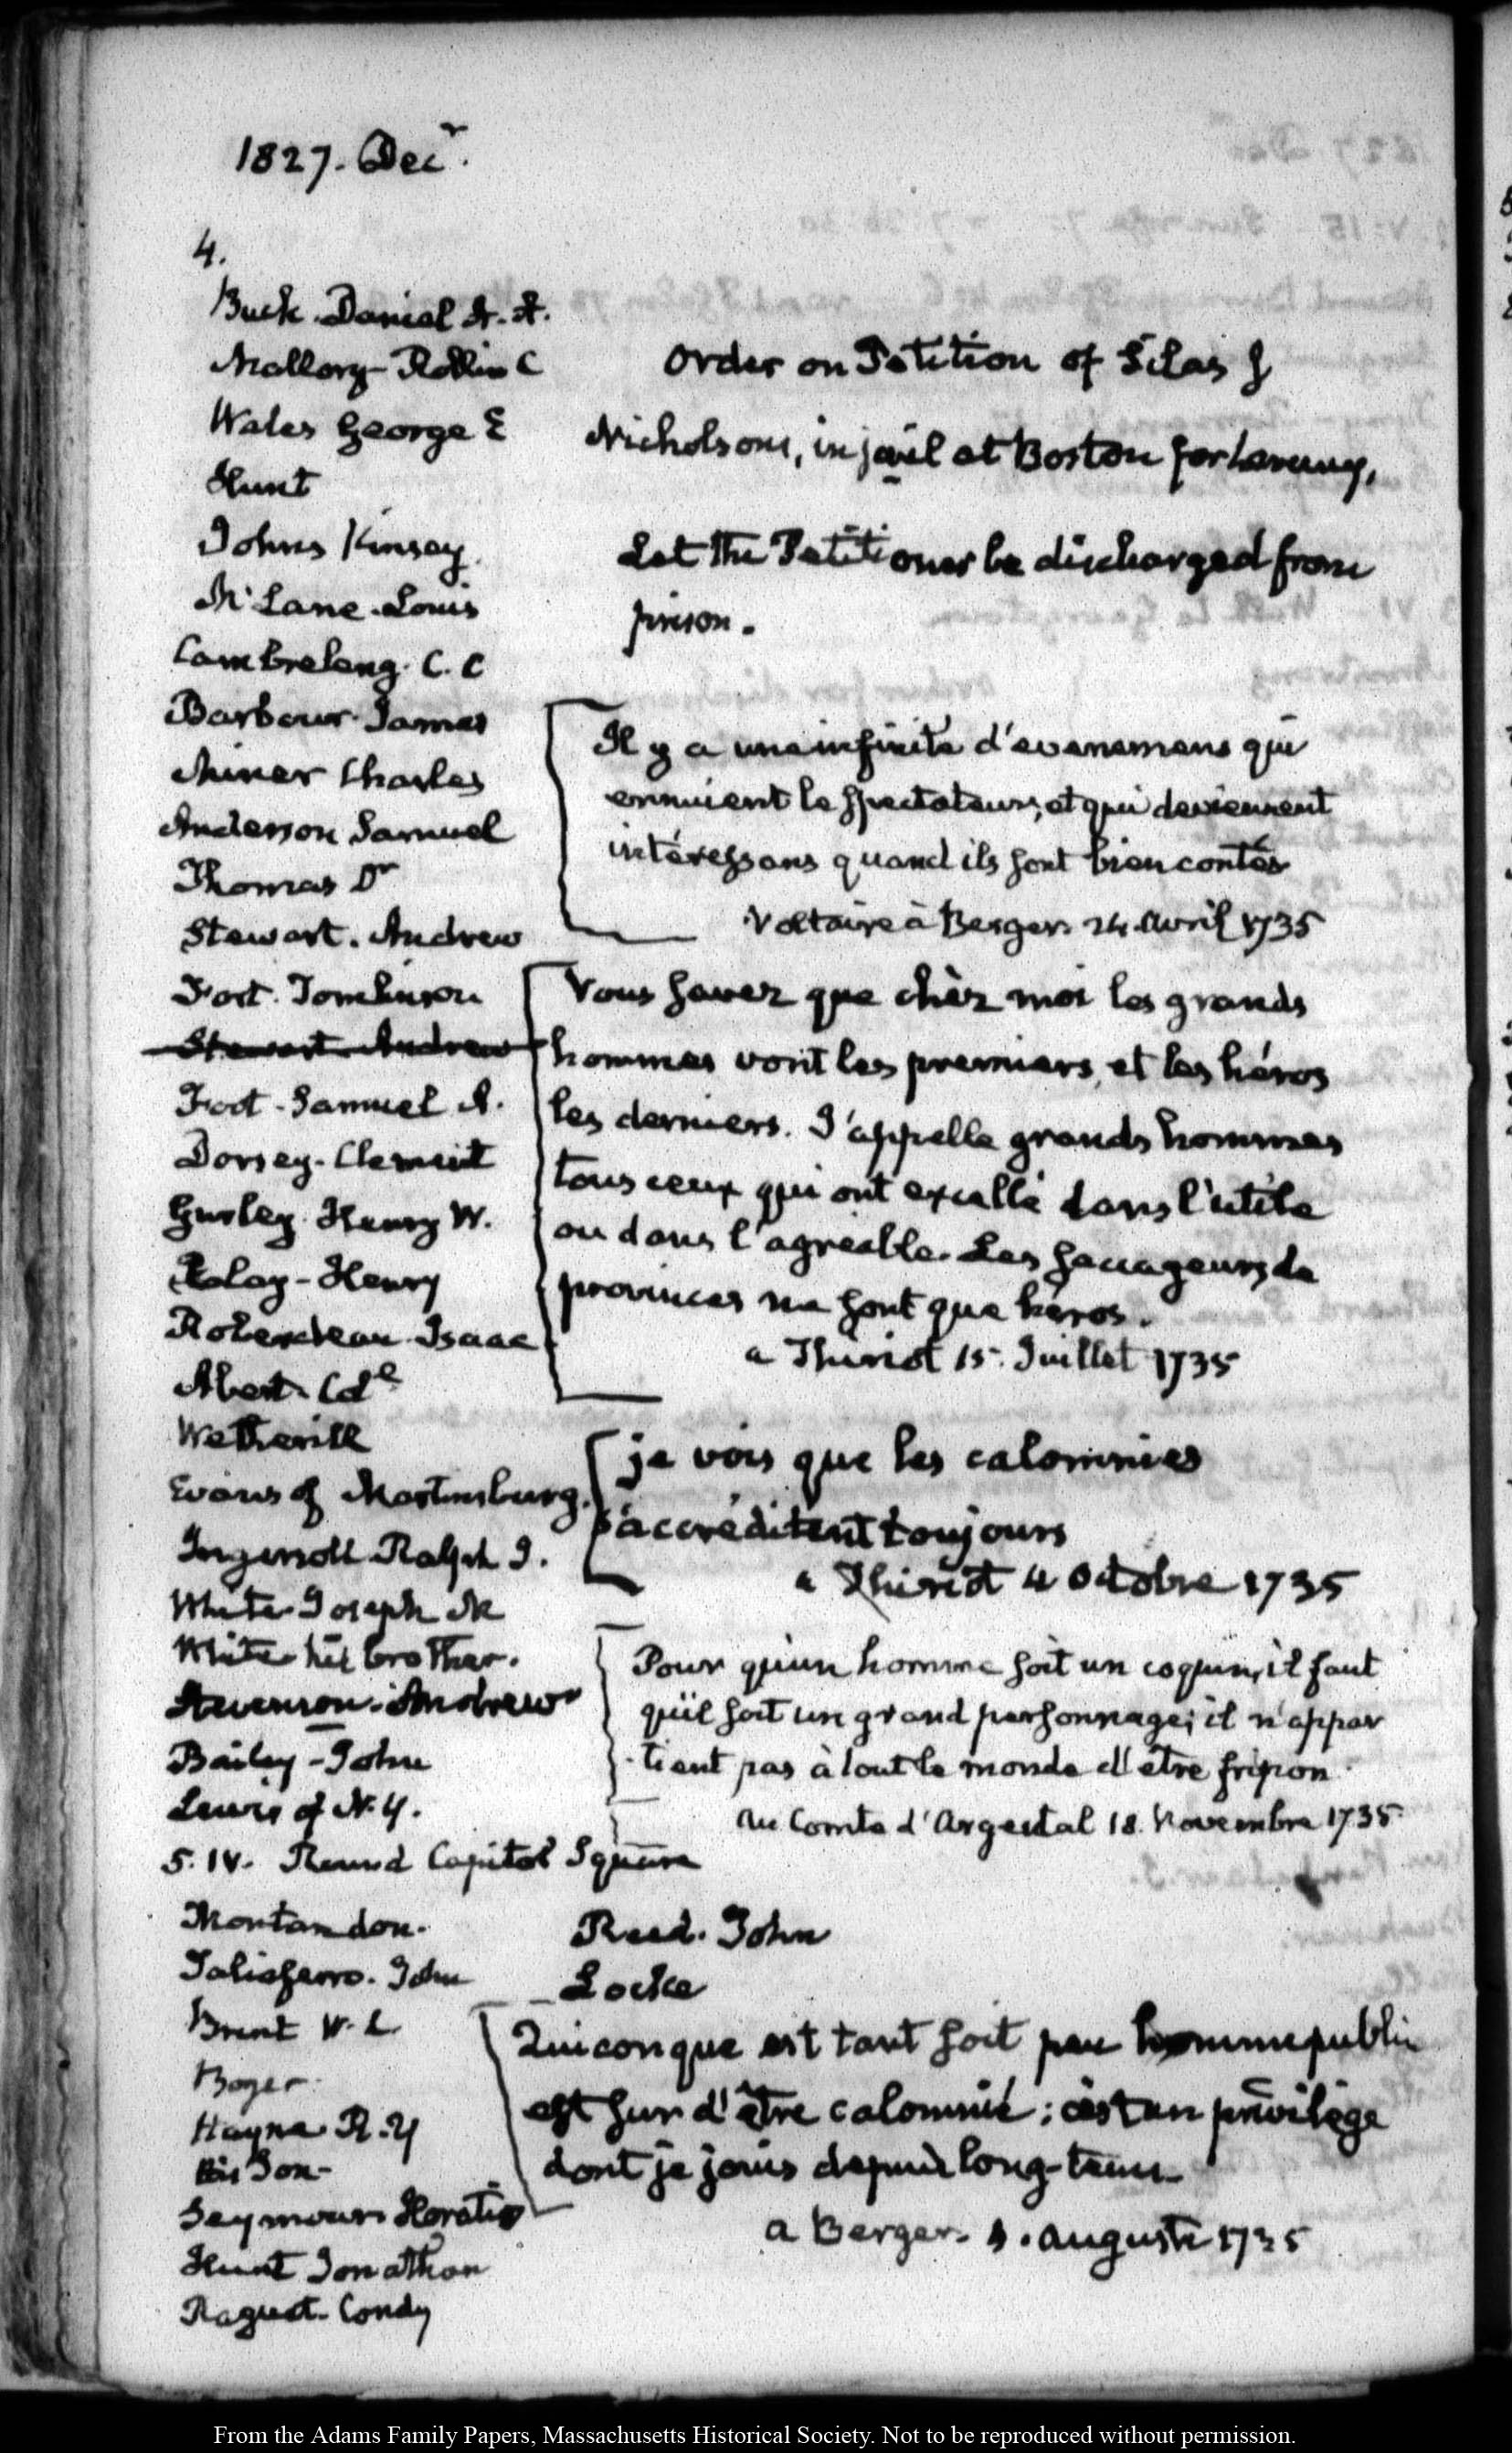 1827. Decr.
4.
Buck. Daniel A. A.
Mallory - Rollin C
Wales George E
Hunt
Johns Kinsey
McLane. Louis
Cambreleng. C. C
Barbour. James
Miner Charles
Anderson Samuel
Thomas Dr
Stewart. Andrew
Fort. Tomlinson
Stewart. Andrew
Foot - Samuel A.
Dorsey - Clement
Gurley. Henry W.
Henry
Isaac
Abert. Coll
Wetherill
Evans of Martinsburg.
Ingersoll Ralph I.
White Joseph M
White his brother.
Stevenson. Andrew
Bailey - John
Lewis of N. Y.
5. IV. Round Capitol Square
Montandon.
Taliaferro. John
Brent W. L.
Boyer
Hayne R. Y
his Son -
Seymour Horatio
Hunt Jonathan
Raguet. Condy
Order on Petition of Silas
in jail at Boston for larceny,
Let the Petitioner be discharged from
prison.
Il y a une infinité d'evenemens qui
ennuient le spectateur, et qui deviennent
intéressans quand ils sont bien contés
Voltaire à Berger. 24. Avril 1735
Vous savez que chèz moi les grands
hommes vont les premiers, et les héros
les derniers. J'appelle grands hommes
tous ceux qui ont excellé dans l'utile
ou dans l'agréable. Les saccageurs de
provinces ne sont que héros.
a Thiriot 15. Juillet 1735
je vois que les calomnies
s'accréditent toujours
a Thiriot 4 Octobre 1735
Pour qu'un homme soit un coquin, it faut
qu'il soit un grand personnage; il n'appar
-tient pas à tout le monde d'etre fripon.
Au Comte d'Argental 18. Novembre 1735
Reed. John
Locke
Quiconque est tant soit peu homme public
est sur d'être calomnié; c'est un privilège
dont je jouis depuis long-tems
a Berger. Auguste 1735
From the Adams Family Papers, Massachusetts Historical Society. Not to be reproduced without permission.